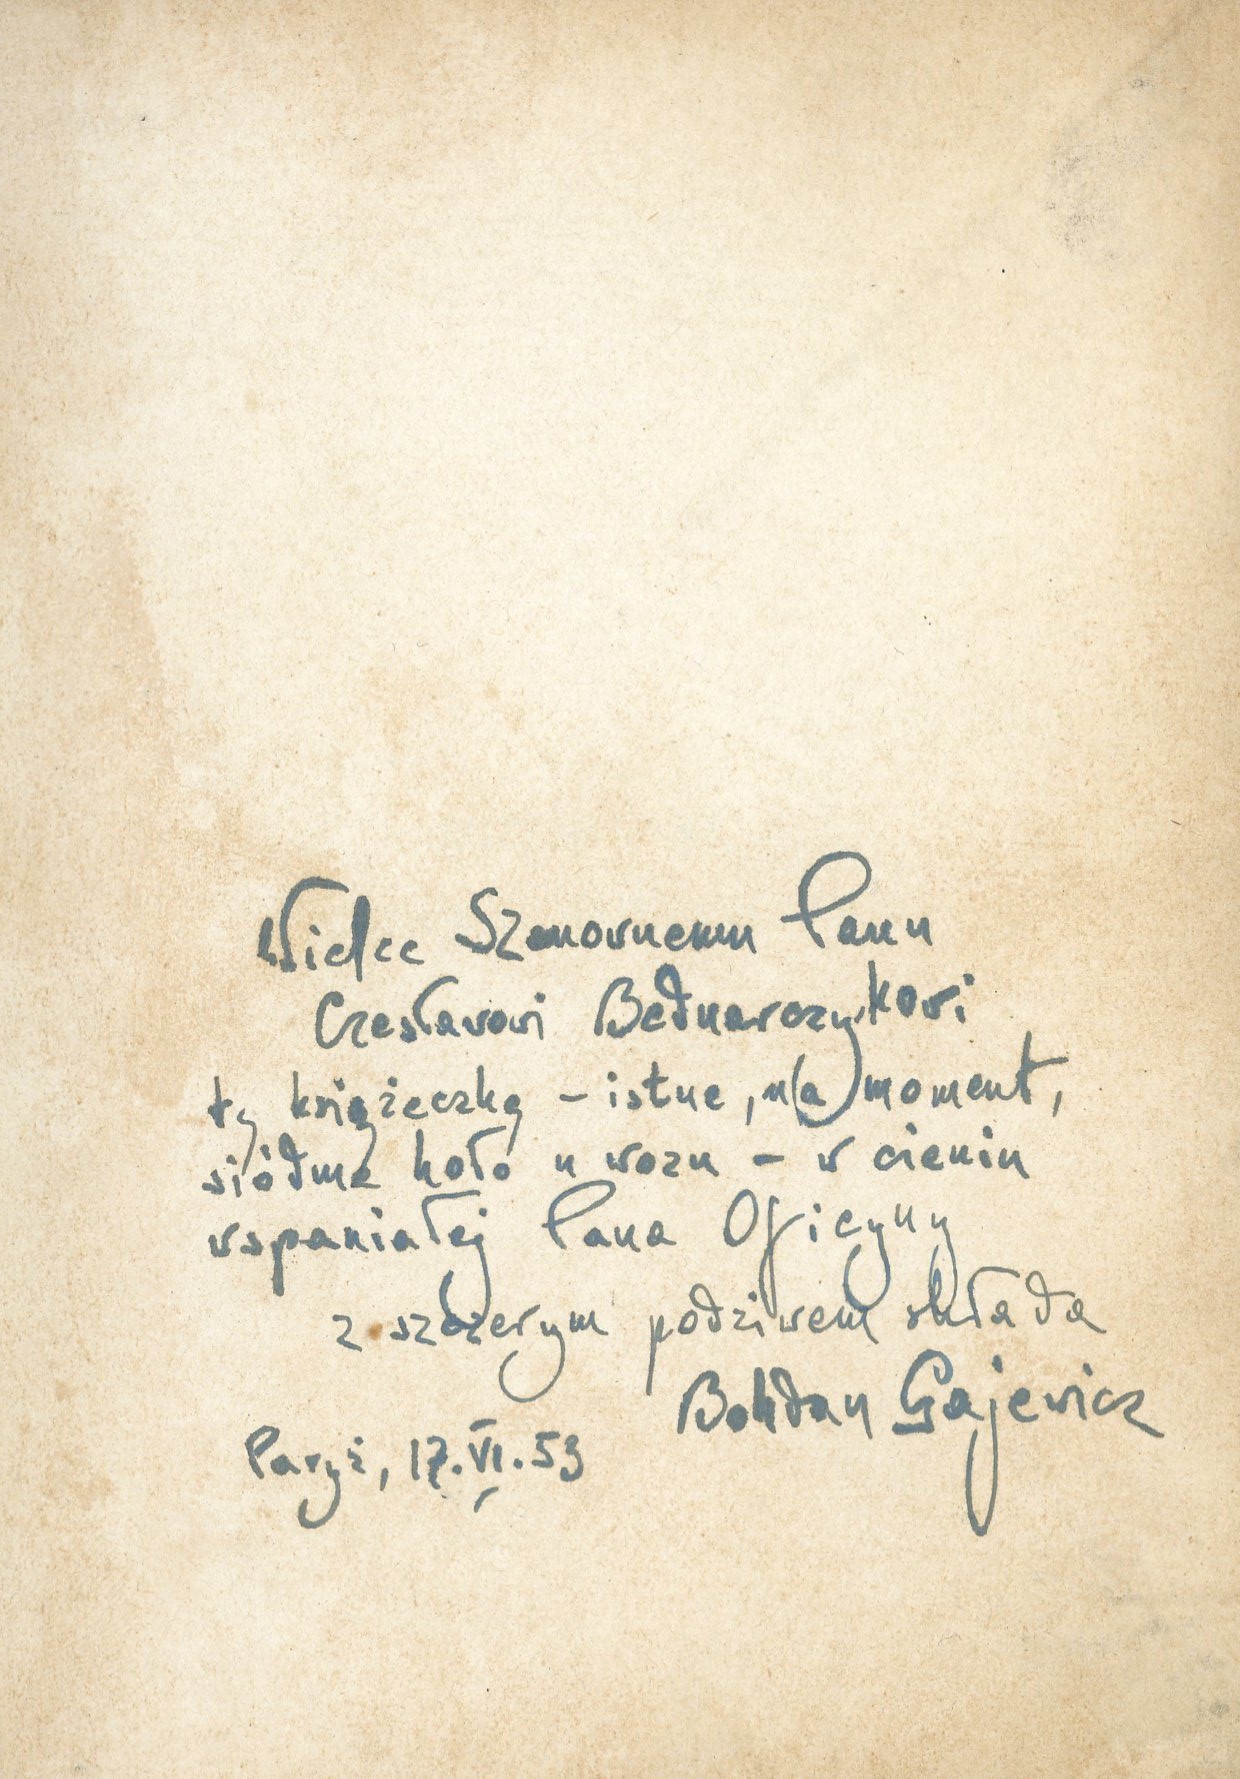 Wielce Szanownemu Panu
Czesławowi Bednarczykowi
tę książeczkę – istne, n(a) moment,
siódme koło u wozu – w cieniu
wspaniałej Pana Oficyny
z szczerym podziwem składa
Bohdan Gajewicz
Paryż, 17.VI.53